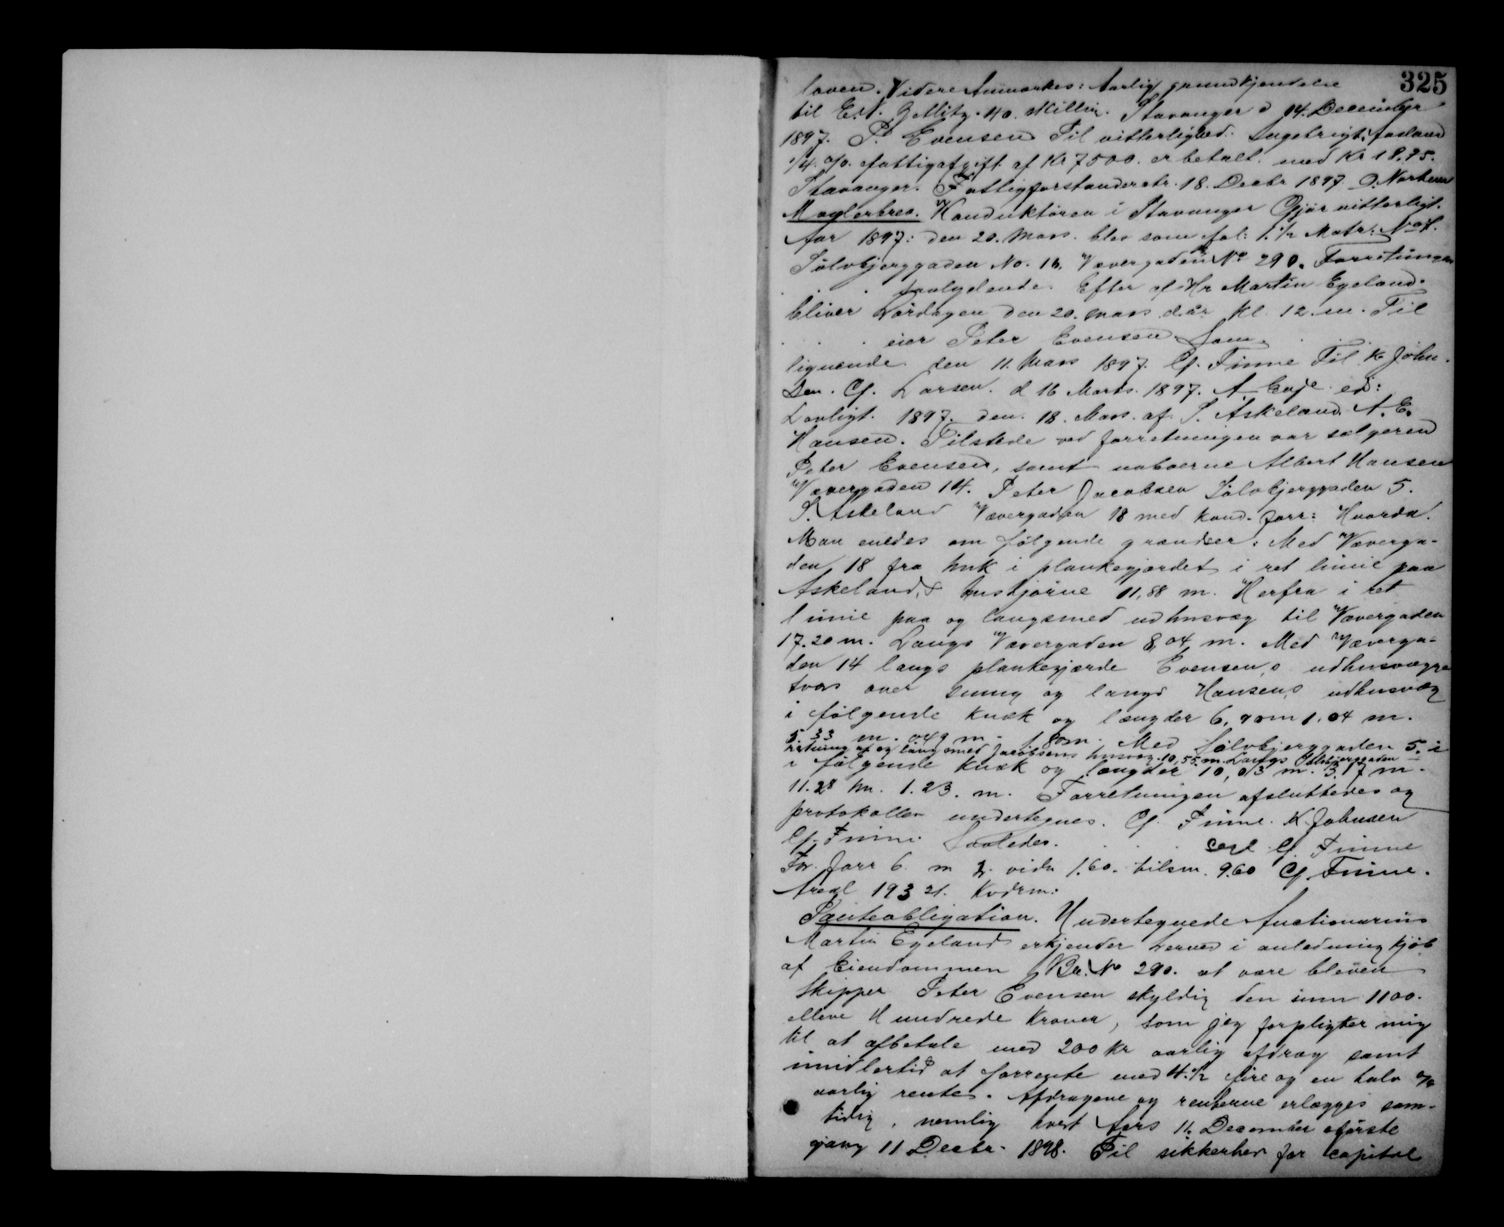 325
loven. Videre Anmærkes: Aarlig grundkjendelse
til Ed. Zetlitz. 40. Skilling. Stavanger d 14. December
1897. P. Evensen Til vitterlighed. Ingebrigt. Fosland
1/4. %. fattigafgift af Kr 7500. er betalt med Kr 18,75.
Stavanger. Fattigforstanderstr. 18. Decbr 1897 O. Nordbøe
Maalerbrev. Konduktøren i Stavanger Gjør vitterligt.
Aar 1897: den 20. Mars. blev som fol: 1. 1/2 Matr: No 4.
Sølvbjerggaden No. 16. Vævergaden No 290. Forretningen
saalydende. Efter af Hr Martin Egeland.
bliver Lørdagen den 20. mars d.år kl. 12. m. Til
eier Peter Evensen Sam-
lignende den 11. Mars 1897. Cf. Finne Til K John-
sen. Cf. Larsen. d 16 Marts. 1897. A. Enge ed:
Lovligt. 1897. den. 18. Mars. af. P. Askeland. A. E.
Hansen. Tilstede ved forretningen var sælgeren
Peter Evensen, samt naboerne Albert Hansen
Vævergaden 14. Peter Jacobsen Sølvbjerggaden 5.
P. Askeland Vævergaden 18 med kond. forr: Hvorda.
Man enedes om følgende grændser: Med Væverga-
den 18 fra knæk i plankegjærdet i ret linie paa
Askeland,s hushjørne 11,88 m. Herfra i ret
linie paa og langsmed udhusvæg til Vævergaden
17.20 m. Langs Vævergaden 8,04 m. Med Væverga-
den 14 langs plankegjærde Evensen,s udhusvægge
tvers over smug og langs Hansens udhusvæg
i følgende knæk og længder 6,90 m 1.04 m.
5.33 m. 0,49 m. 1.80 m. Med Sølvbjerggaden 5. i
retning af og lang med Jacobsens husvæg. 10,55 m. Langs Sølvbjerggaden
i følgende knæk og længder 10,03 m. 3.17 m.
11.28 m. 1.23. m. Forretningen afsluttedes og
protokollen undertegnes. Cf. Finne. K Johnsen
Cf. Finne. Saaledes. . . . Cf. Finne
For. forr 6. m 2. vidn 1.60. tilsm. 9.60 Cf Finne.
Areal 193 21. Kvdrm:
Panteobligation. Undertegnede Auctionarius
Martin Egeland erkjender herved i anledning kjøb
af Eiendommen Br. No 290. at være bleven
Skipper Peter Evensen skyldig den sum 1100.
elleve Hundrede Kroner, som jeg forpligter mig
til at afbetale med 200 kr aarlig afdrag samt
imidlertid at forrente med 4. 1/2 fire og en halv %
aarlig rente. Afdragene og renterne erlægges sam-
tidig, nemlig hvert Aars 11. December første
gang 11 Decbr. 1898. Til sikkerhed for capital